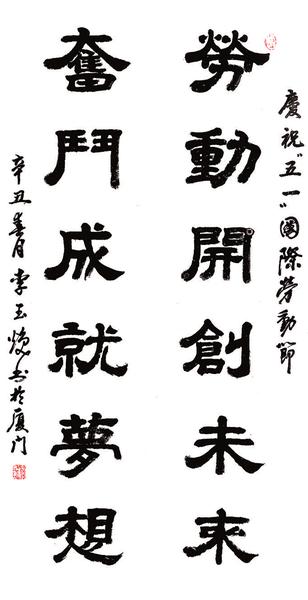 慶祝"五一"國際勞動節
勞動開創未來
奮鬥成就夢想
辛丑春月李玉焕书於厦门